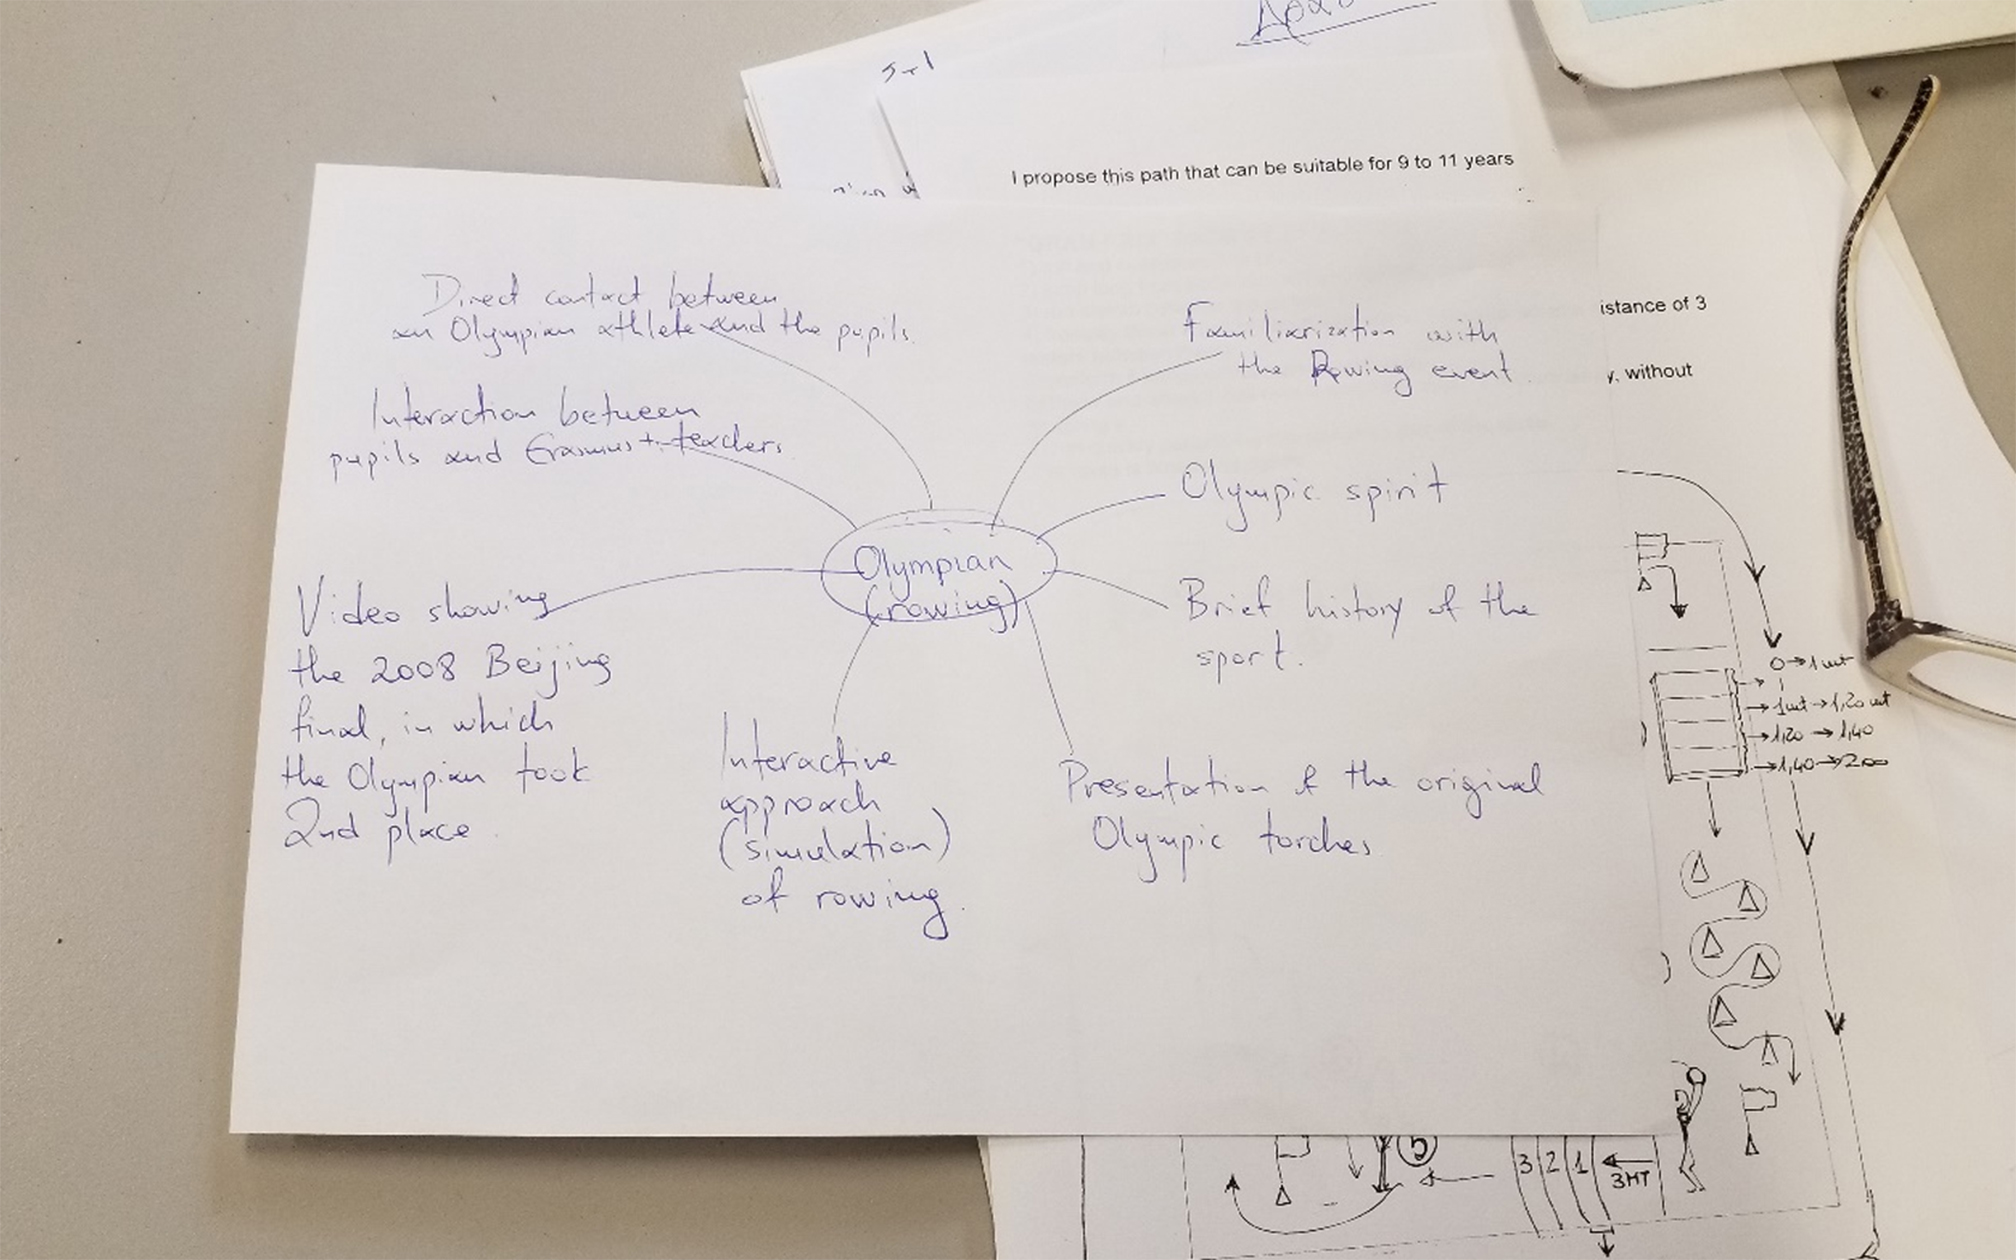 5-1
I propose this path that can be suitable for 9 to 11 years
istance of 3
y, without
Direct contact between
an Olympian athlete and the pupils.
Interaction between
pupils and Erasmus+ teachers
Video showing
the 2008 Beijing
final, in which
the Olympian took
2nd place.
Interactive
approach
(simulation)
of rowing.
Olympian
(rowing)
Familiarization with
the Rowing event.
Olympic spirit
Brief history of the
sport.
Presentation of the original
Olympic torches
0→1mt
1mt→1,20mt
→1,20→1,40
→1,40→2,00
5
3 2 1
3MT